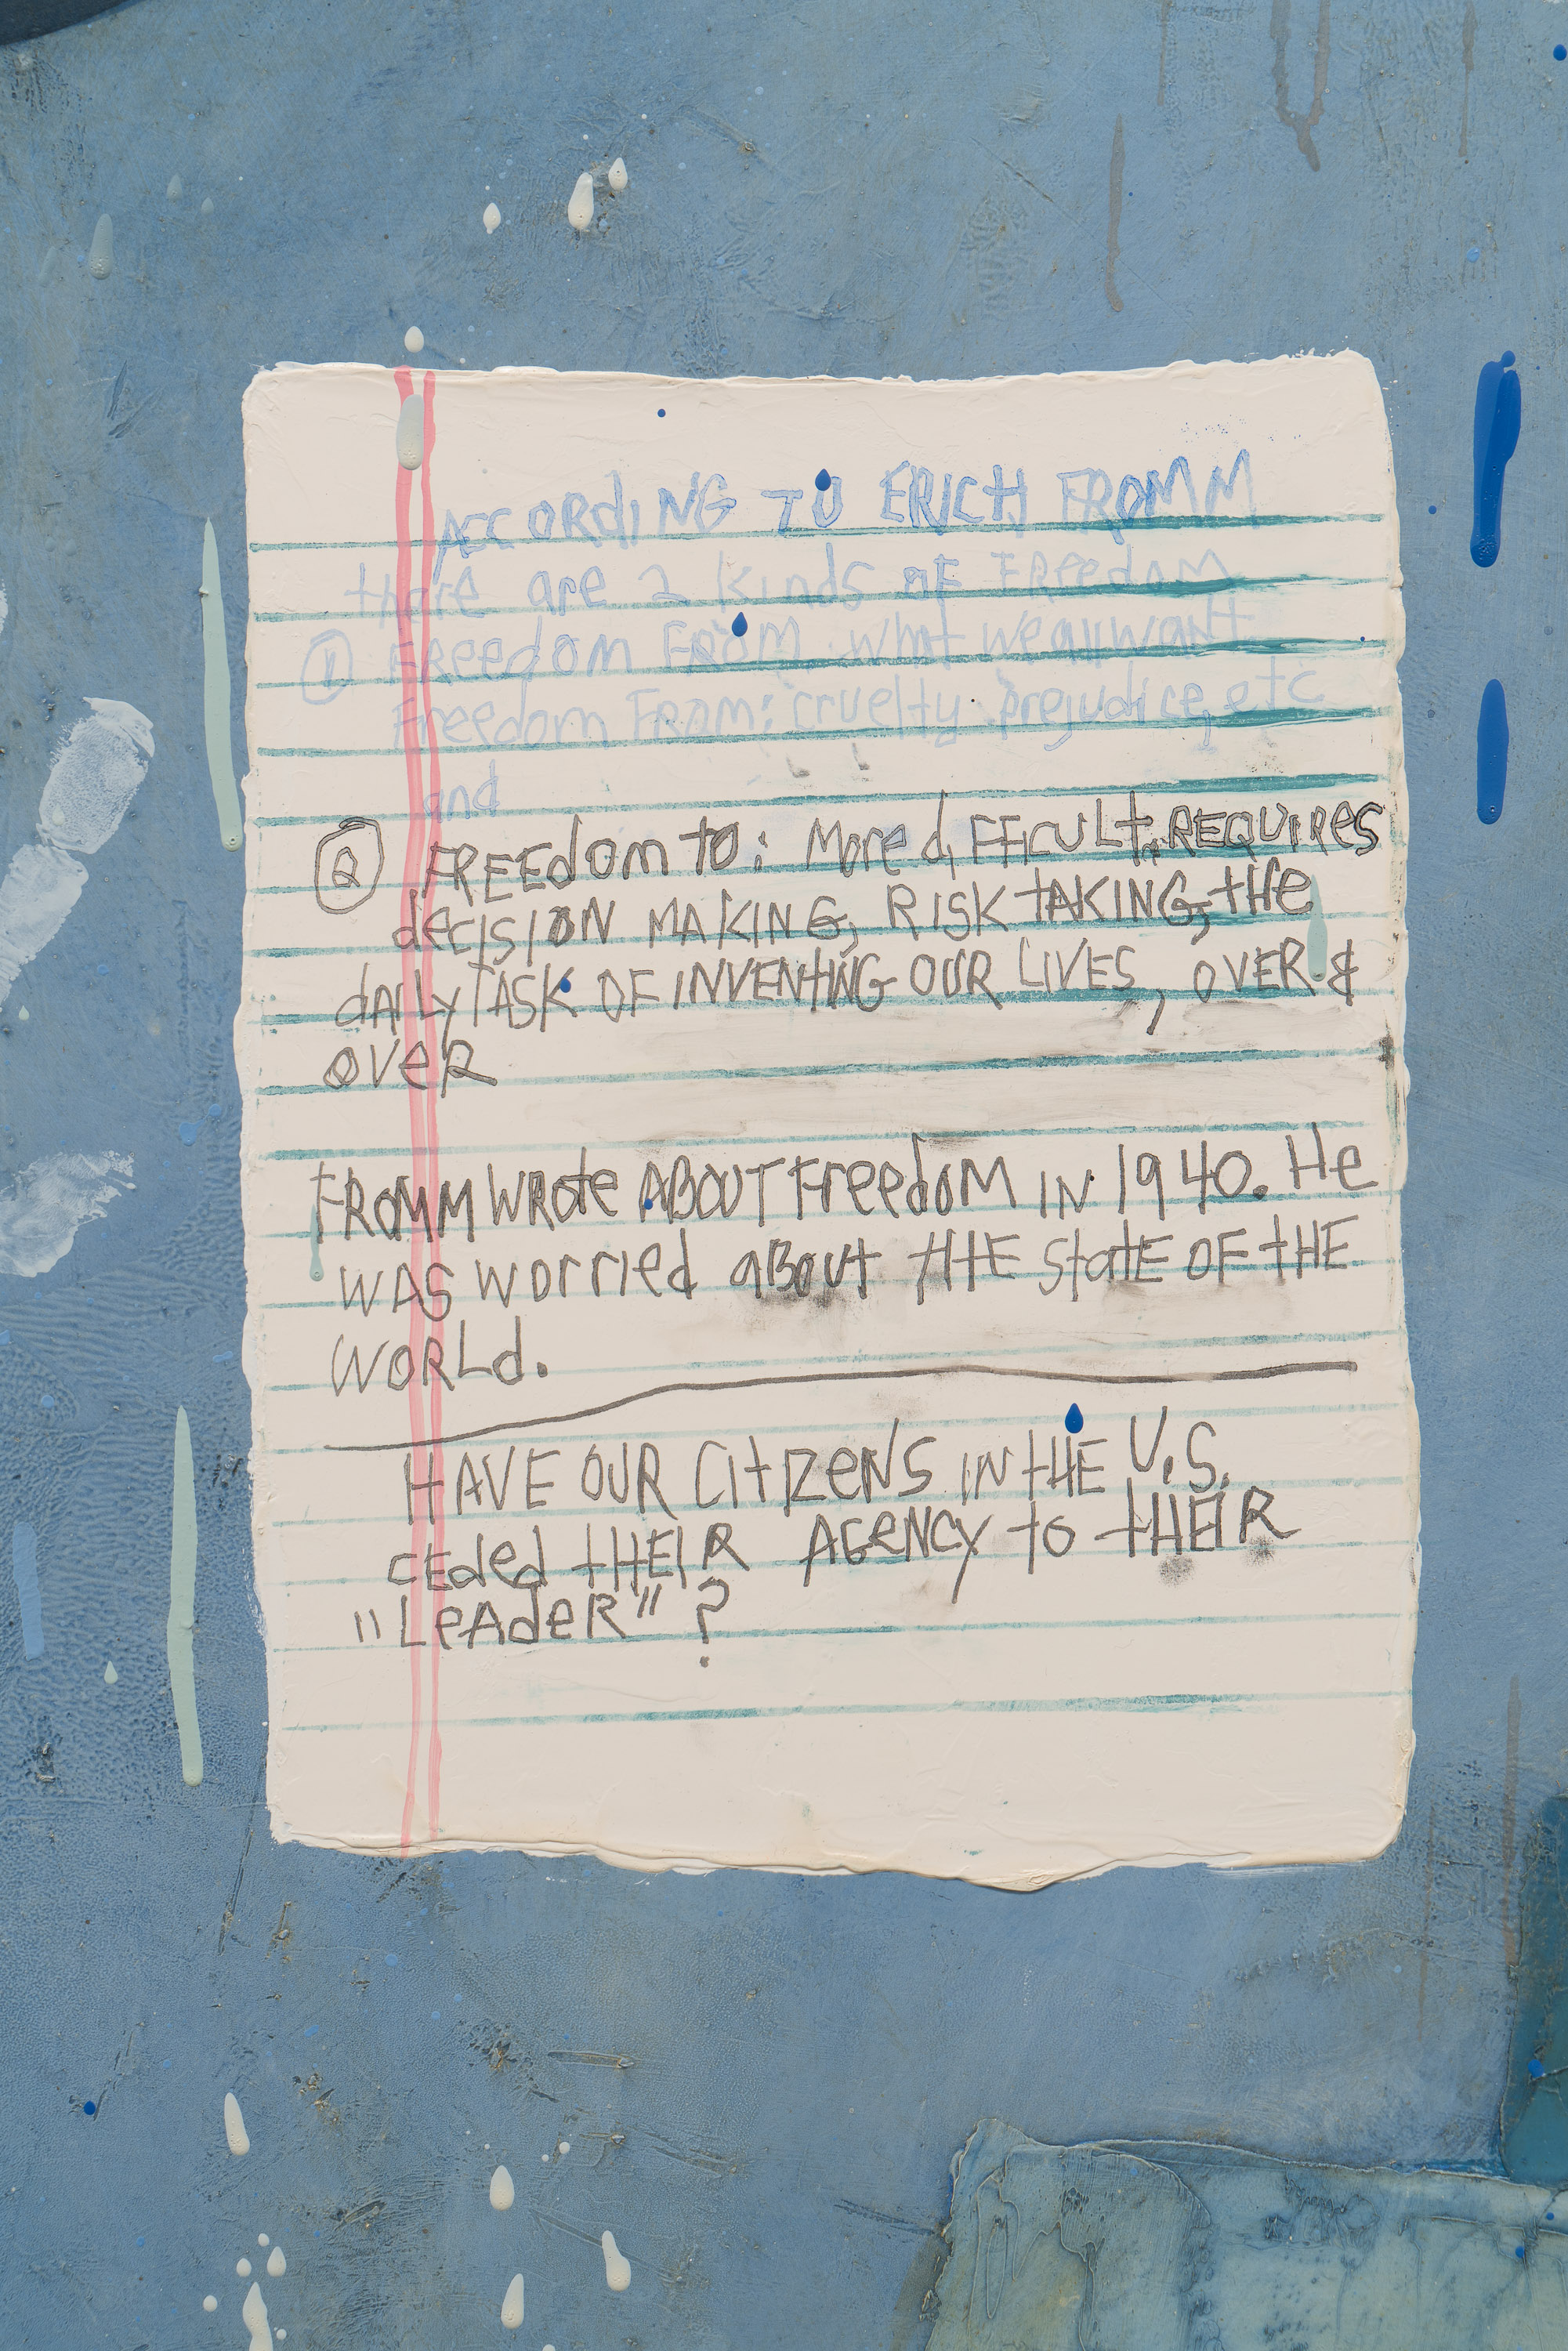 ACCORdING TO ERICH FROMM
there are 2 kinds oF FReedom
① FReedom FROM what we all want
Freedom FROM: cruelty prejudice, etc
and
② FREEdom to: More dIFFICULT, REQUIRes
decISION MAKING, RISK TAKING, tHe
dAILY TASK OF INVENTING OUR LIVES, OVER &
OVeR
FROMM WRote ABOUT FreedOM IN 1940. He
WAS worried aBout tHE StatE OF tHE
WORLd.
HAVE OUR CItIZeNS IN tHE U.S.
CEded tHEIR AGeNCY to tHEIR
"LeAdeR"?